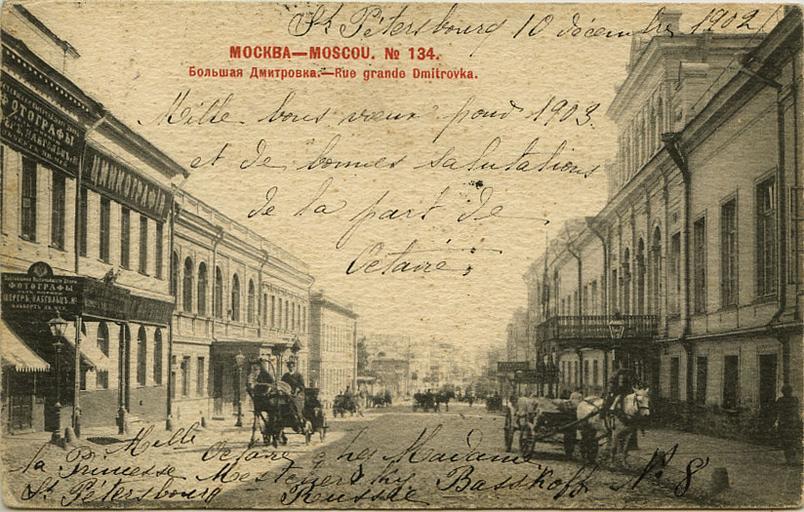 St Pétersbourg 10 décembre 1902
МОСКВА—MOSCOU. № 134.
Большая Дмитровка.—Rue grande Dmitrovka.
Mille bons vœux pour 1903
et de bonnes salutations
de la part de
Octavie.
ФОТОГРАФЫ
ФОТОГРАФЫ
ШЕРЕРЪ, НАБГОЛЬЦЪ и Кº
Mlle Octavie chez Madame
la Princesse Mestchersky Basskoff № 8
St Pétersbourg Russie